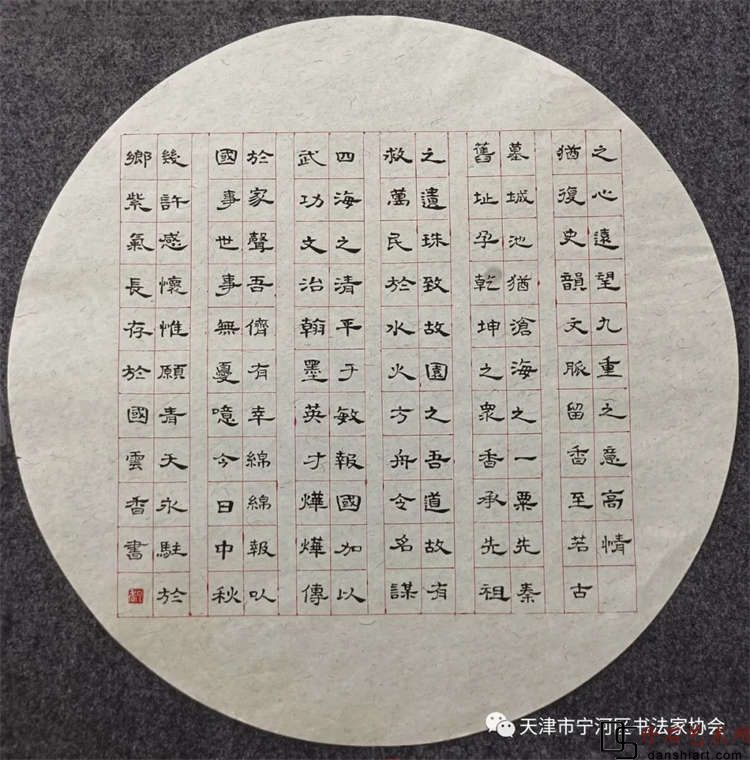 之心遠望九重之意高情
猶復史韻文脈留香至若古
墓城池猶滄海之一粟先秦
舊址孕乾坤之眾香承先祖
之遺珠致故園之吾道故有
救萬民於水火方舟令名謀
四海之清平于敏報國加以
武功文治翰墨英才燁燁傳
於家聲吾儕有幸綿綿報以
國事世事無憂噫今日中秋
幾許感懷惟願青天永駐於
鄉紫氣長存於國雲香書
天津市宁河区书法家协会
danshiart.com